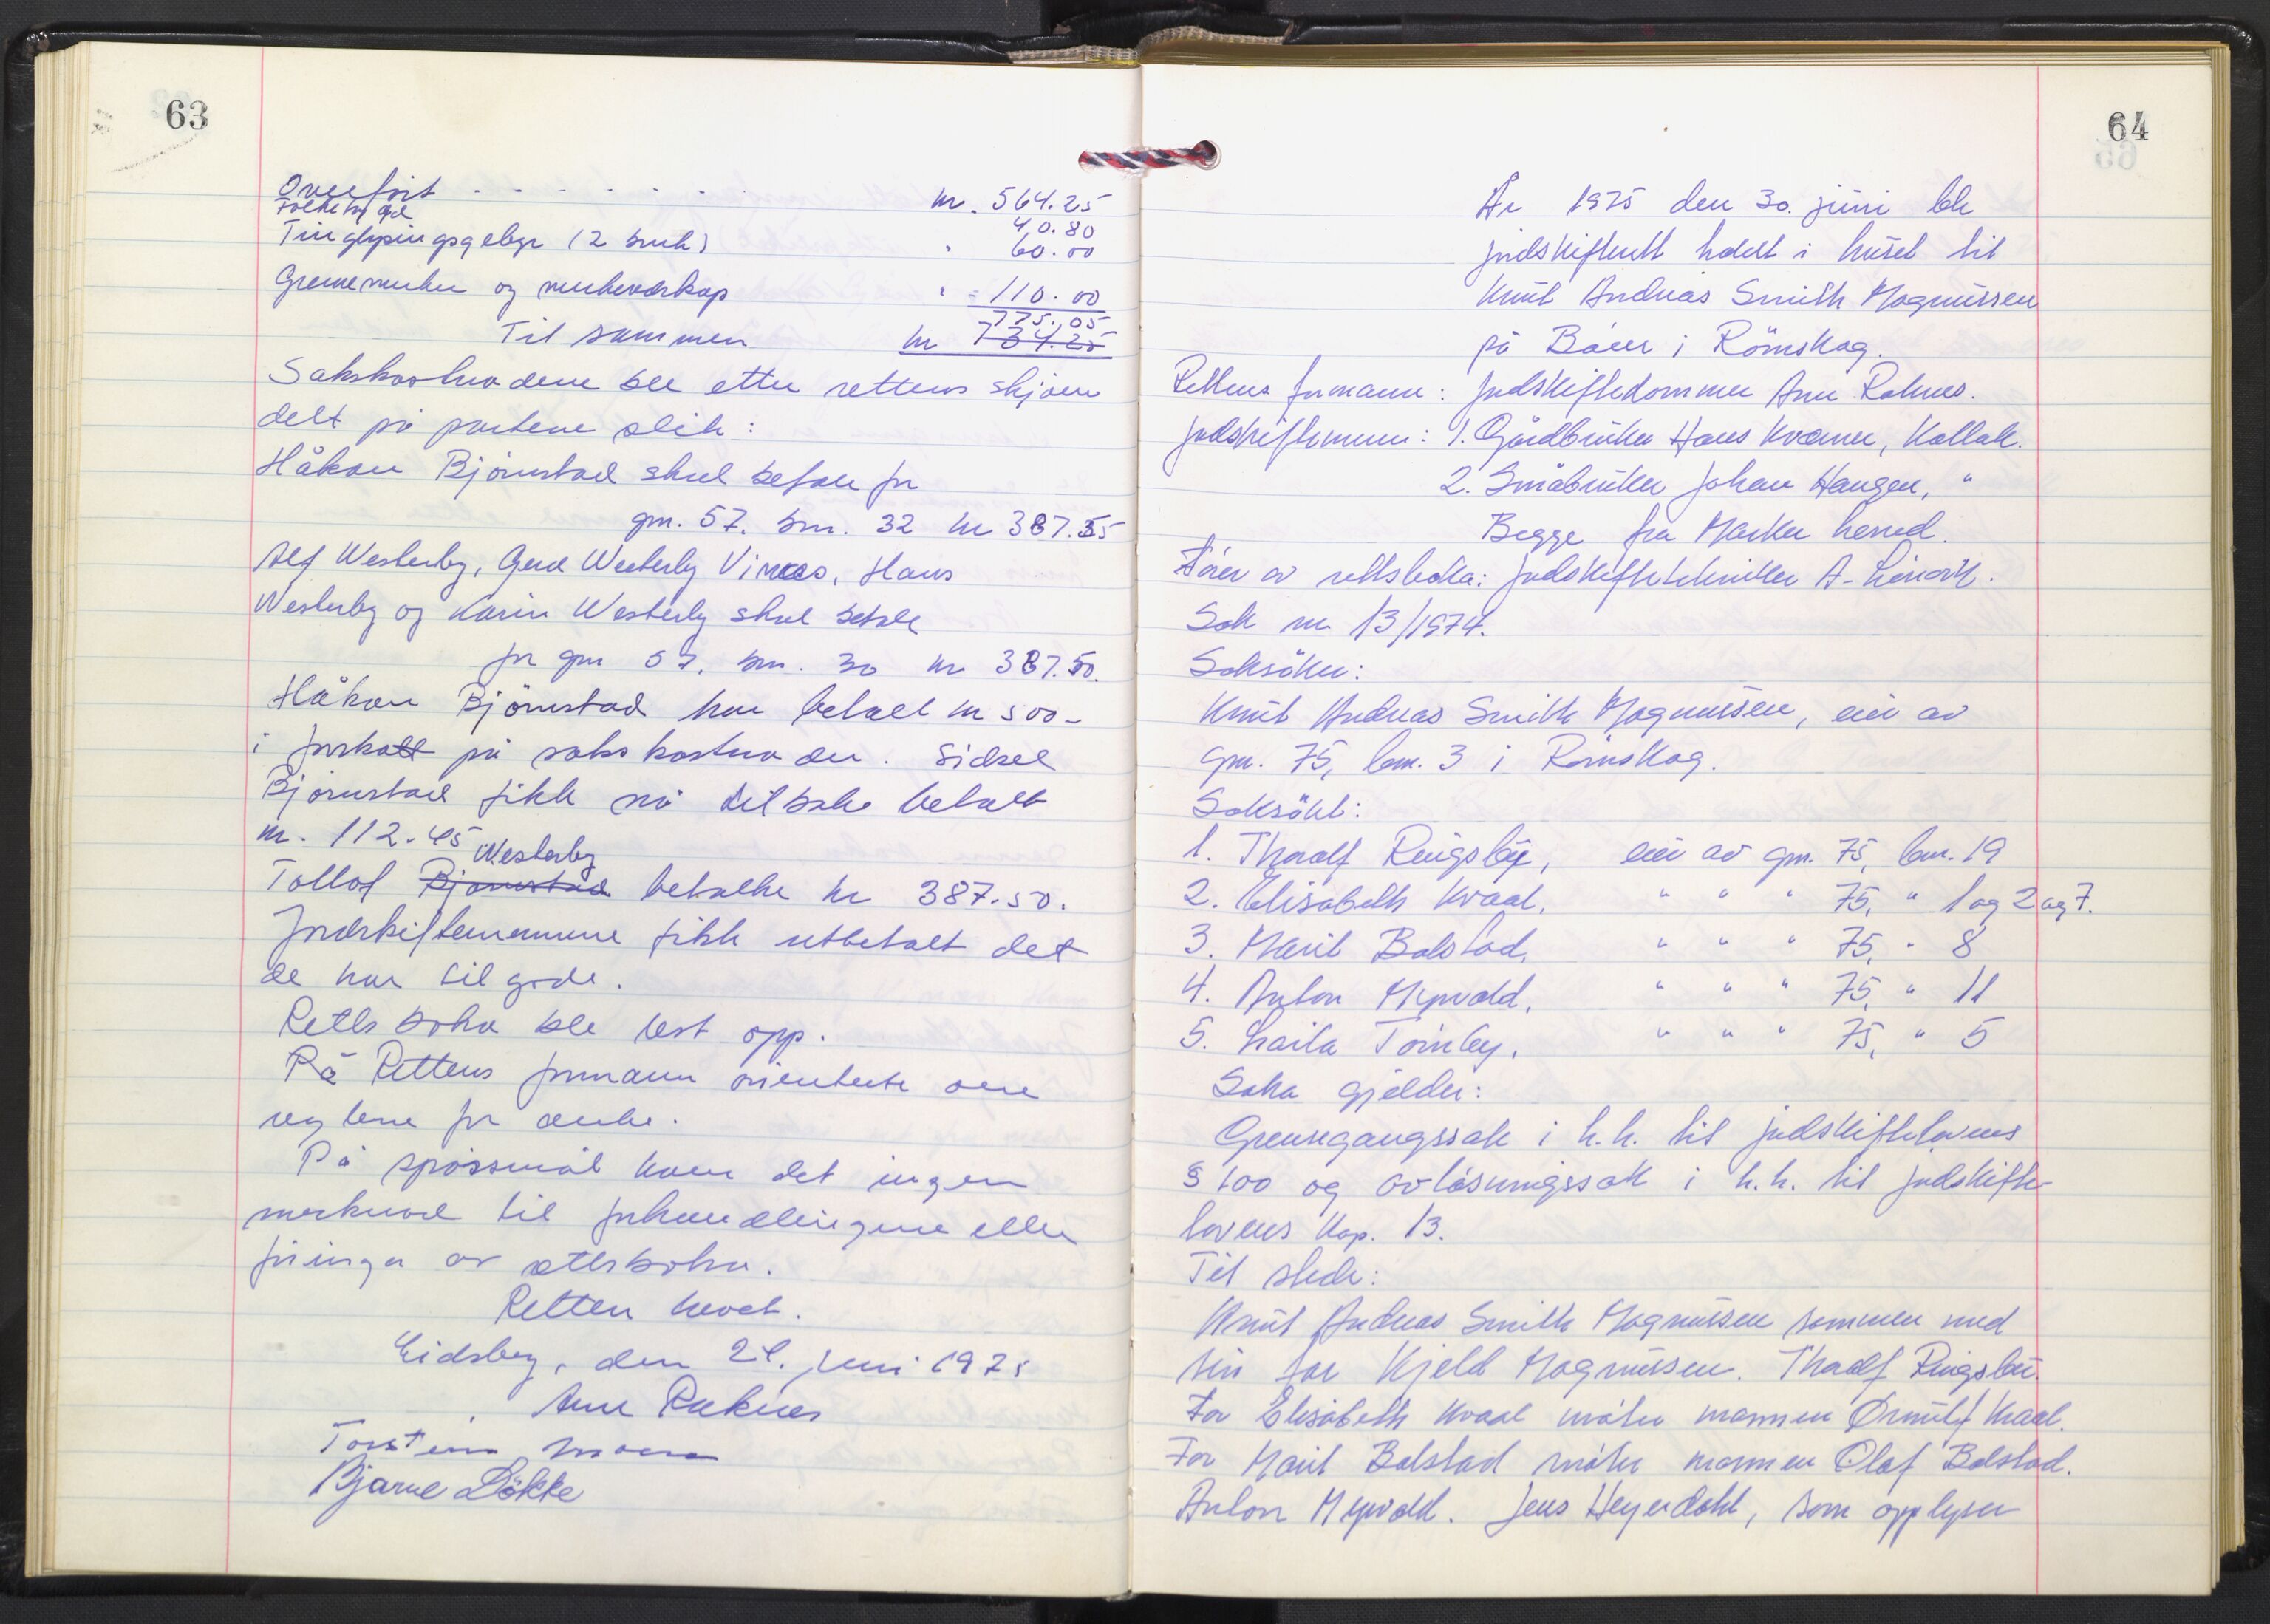 63
Overført - - - - - - kr. 564.25
Folketrygd 40.80
Tinglysingsgebyr (2 bruk) " 60.00
Grensemerker og merkeredskap " 110.00
775.05
Til sammen kr 734.25
Sakskostnadene ble etter rettens skjønn
delt på partene slik:
Håkon Bjørnstad skal betale for
gnr. 57. bnr. 32 kr 387.55
Alf Westerby, Gerd Westerby Vinnes, Hans
Westerby og Karin Westerby skal betale
for gnr 57. bnr. 30 kr 387.50.
Håkon Bjørnstad har betalt kr 500-
i forskott på sakskostnader. Sidsel
Bjørnstad fikk nå tilbake betalt
kr. 112.45
Westerby
Tollof Bjørnstad betalte kr 387.50.
Jordskiftemennene fikk utbetalt det
de har til gode.
Rettsboka ble lest opp.
På Rettens formann orienterte om
reglene for anke.
På spørsmål kom det ingen
merknad til forhandlingene eller
føringa av rettsboka.
Retten hevet.
Eidsberg, den 24. juni 1975
Arne Raknes
Torstein
Bjarne Løkke
64
År 1975 den 30. juni ble
jordskifterett holdt i huset til
Knut Andreas Smith Magnussen
på Bøen i Rømskog.
Rettens formann: Jordskiftedommer Arne Raknes.
Jordskiftemenn: 1. Gårdbruker Hans Kværner, Kallak.
2. Småbruker Johan Haugen, "
Begge fra Marker herred.
Fører av rettsboka: Jordskiftetekniker A.
Sak nr 13/1974.
Saksøker:
Knut Andreas Smith Magnussen, eier av
gnr. 75, bnr. 3 i Rømskog.
Saksøkt:
1. Thoralf Ringsby, eier av gnr. 75, bnr. 19
2. Elisabeth Kvaal, " " " 75, " 1 og 2 og 7.
3. Marit Bolstad, " " " 75, " 8
4. Anton Myrvold, " " " 75, " 11
5. Laila Tørnby, " " " 75, " 5
Saka gjelder:
Grensegangssak i h.h. til jordskiftelovens
§ 100 og avløsningssak i h.h. til jordskifte-
lovens kap. 13.
Til stede:
Knut Andreas Smith Magnussen sammen med
sin far Kjeld Magnussen. Thoralf Ringsby.
For Elisabeth Kvaal møter mannen Ørnulf Kvaal.
For Marit Bolstad møter mannen Olaf Bolstad.
Anton Myrvold. Jens Heyerdahl, som opplyser